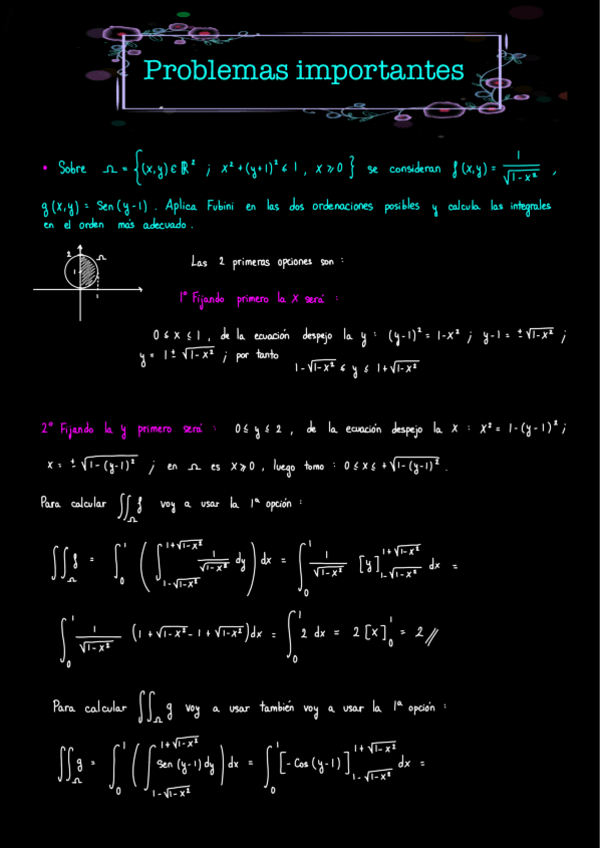 Problemas importantes
• Sobre Ω = {(x,y) ∈ ℝ² ; x² + (y+1)² ≤ 1 , x ≥ 0} se consideran f(x,y) = 1/√(1-x²) ,
g(x,y) = Sen(y-1) . Aplica Fubini en las dos ordenaciones posibles y calcula las integrales
en el orden más adecuado.
2 Ω
1
1
Las 2 primeras opciones son :
1ª Fijando primero la X será :
0 ≤ x ≤ 1 , de la ecuación despejo la y : (y-1)² = 1-x² ; y-1 = ±√(1-x²) ;
y = 1 ± √(1-x²) ; por tanto 1-√(1-x²) ≤ y ≤ 1+√(1-x²)
2ª Fijando la y primero será : 0 ≤ y ≤ 2 , de la ecuación despejo la X : X² = 1-(y-1)² ;
x = ±√(1-(y-1)²) ; en Ω es X ≥ 0 , luego tomo : 0 ≤ x ≤ +√(1-(y-1)²) .
Para calcular ∬_Ω f voy a usar la 1ª opción :
∬_Ω f = ∫_0^1 ( ∫_{1-√(1-x²)}^{1+√(1-x²)} 1/√(1-x²) dy ) dx = ∫_0^1 1/√(1-x²) [y]_{1-√(1-x²)}^{1+√(1-x²)} dx =
∫_0^1 1/√(1-x²) (1 + √(1-x²) - 1 + √(1-x²)) dx = ∫_0^1 2 dx = 2 [x]_0^1 = 2 //
Para calcular ∬_Ω g voy a usar también voy a usar la 1ª opción :
∬_Ω g = ∫_0^1 ( ∫_{1-√(1-x²)}^{1+√(1-x²)} Sen(y-1) dy ) dx = ∫_0^1 [-Cos(y-1)]_{1-√(1-x²)}^{1+√(1-x²)} dx =